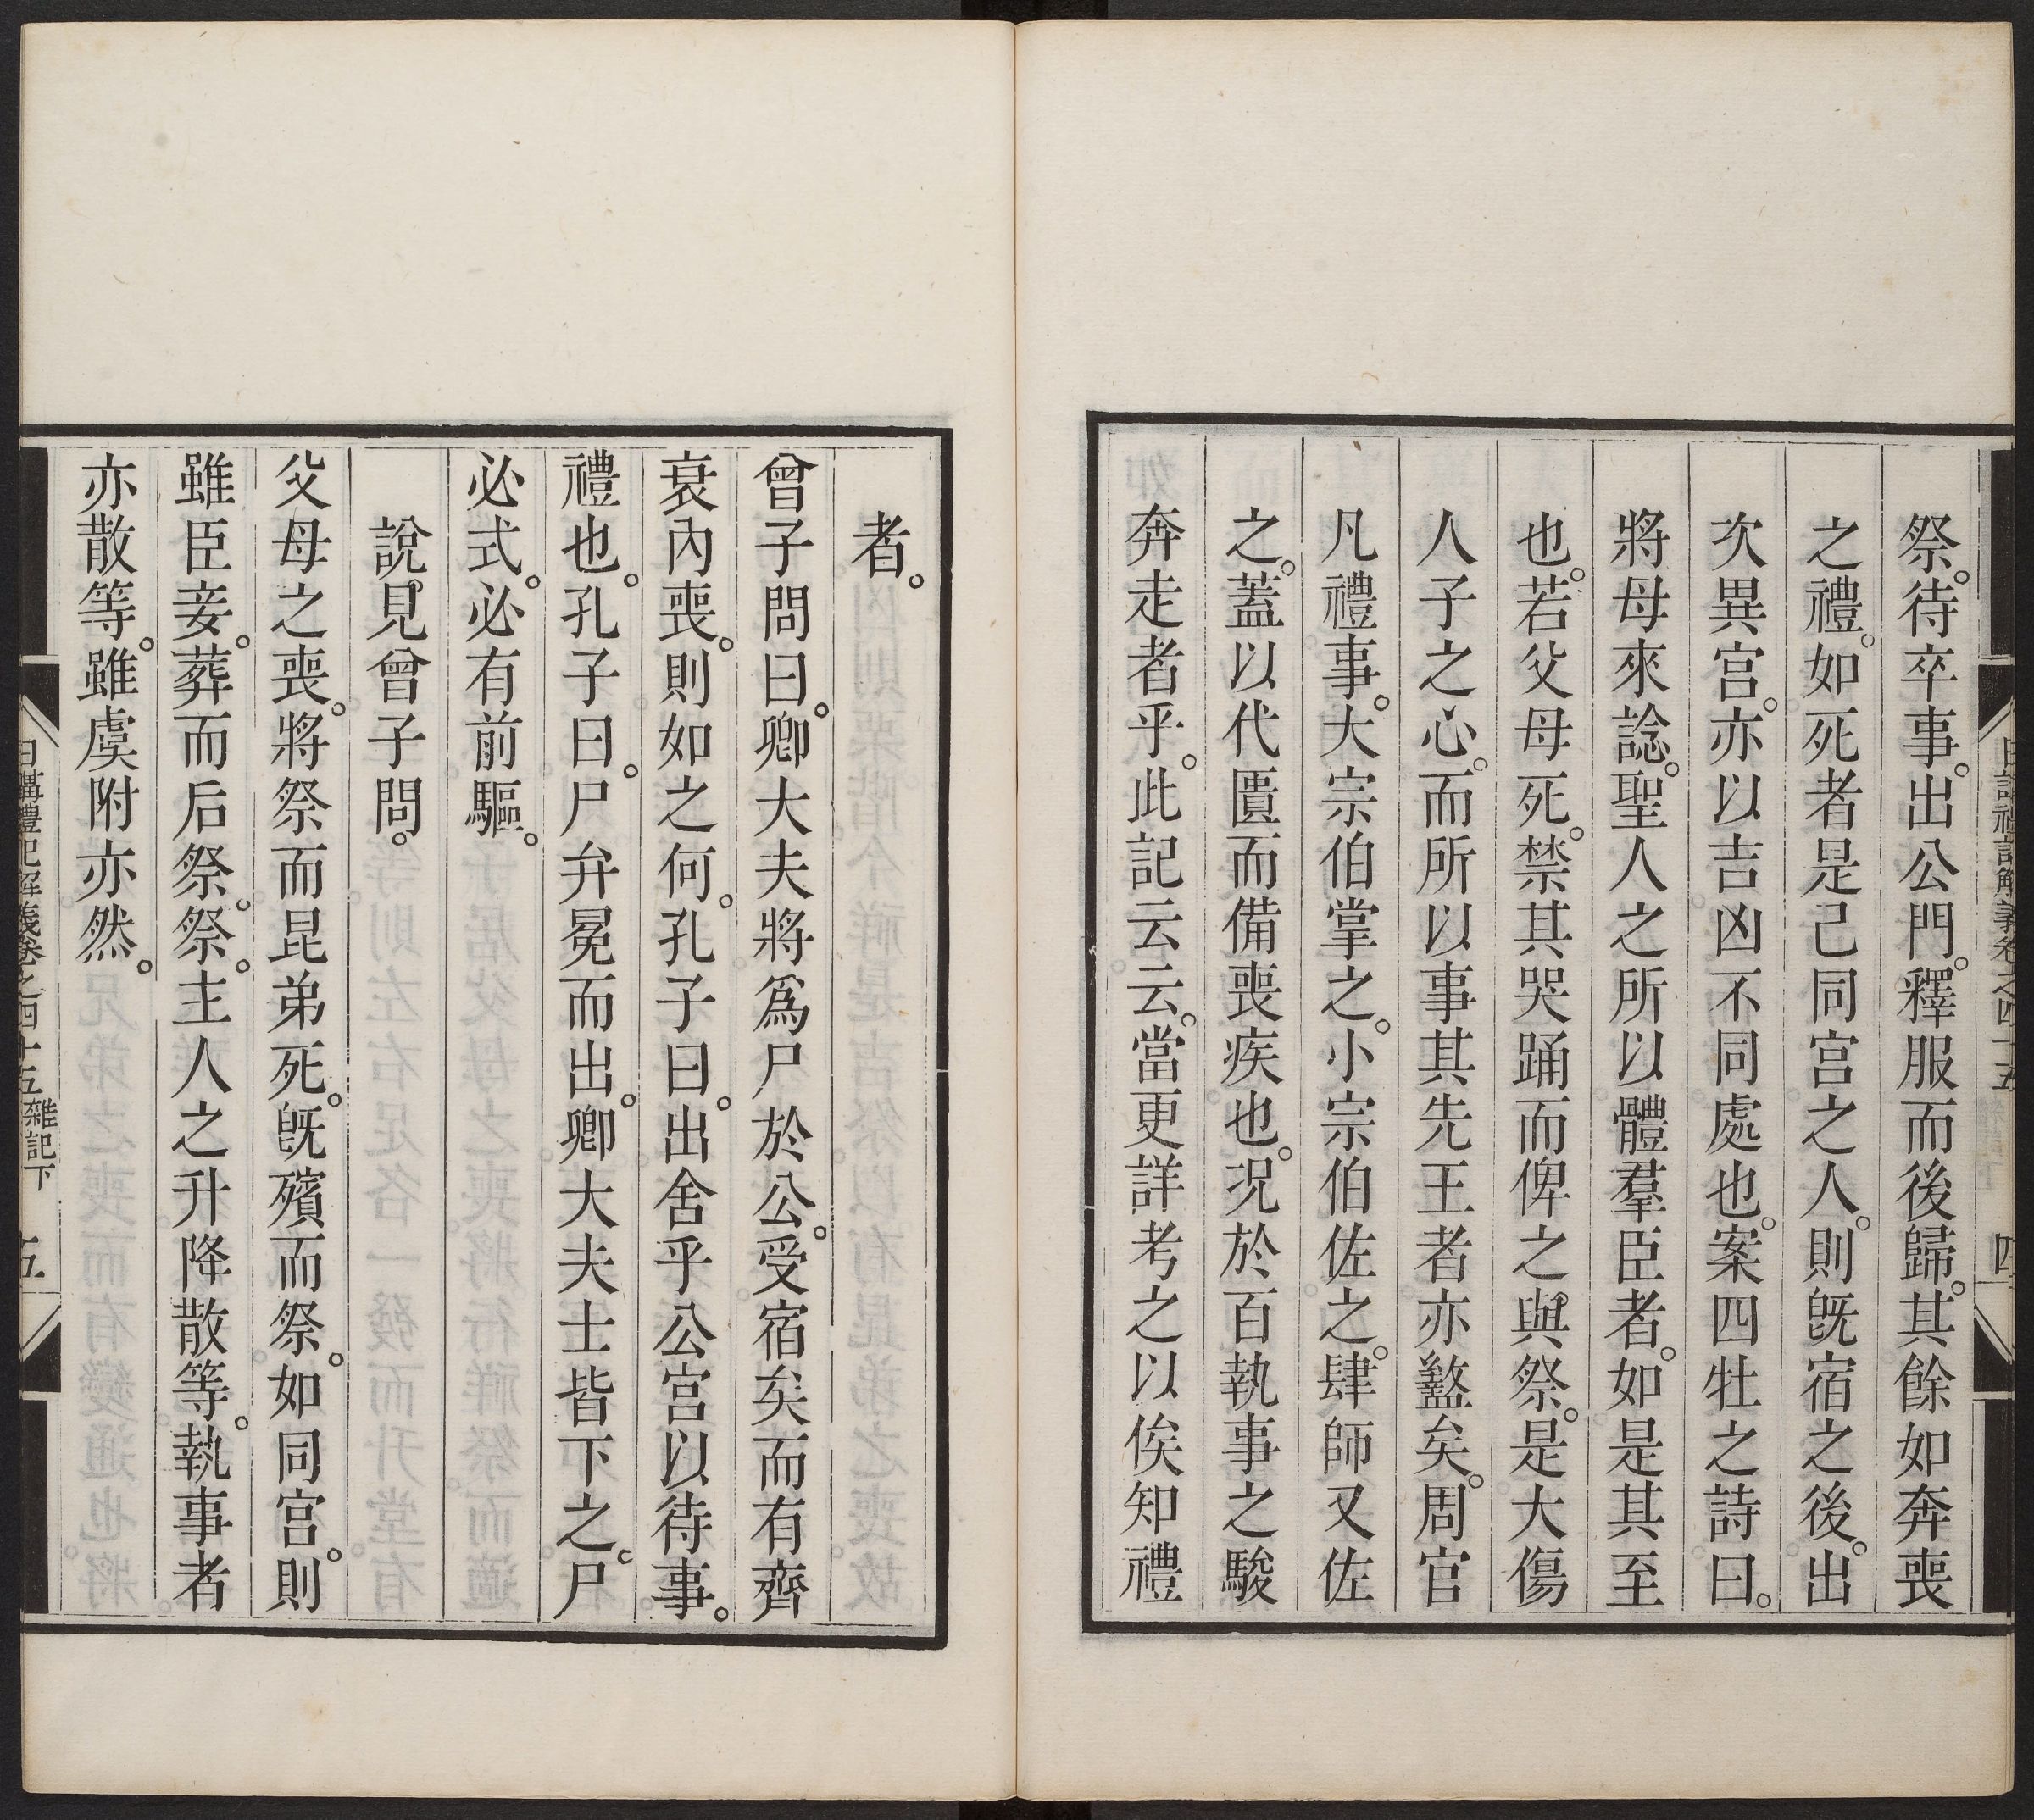 祭。待卒事。出公門。釋服而後歸。其餘如奔喪
之禮。如死者是己同宮之人。則旣宿之後。出
次異宮。亦以吉凶不同處也。案四牡之詩曰。
將母來諗。聖人之所以體羣臣者。如是其至
也。若父母死。禁其哭踊而俾之與祭。是大傷
人子之心。而所以事其先王者亦盭矣。周官
凡禮事。大宗伯掌之。小宗伯佐之。肆師又佐
之。蓋以代匱而備喪疾也。況於百執事之駿
奔走者乎。此記云云。當更詳考之以俟知禮
者。
曾子問曰。卿大夫將爲尸於公。受宿矣而有齊
衰內喪。則如之何。孔子曰。出舍乎公宮以待事。
禮也。孔子曰。尸弁冕而出。卿大夫士皆下之。尸
必式。必有前驅。
說見曾子問。
父母之喪。將祭而昆弟死。旣殯而祭。如同宮。則
雖臣妾。葬而后祭。祭。主人之升降散等。執事者
亦散等。雖虞附亦然。
日講禮記解義卷之四十五 雜記下 五
日講禮記解義卷之四十五 四